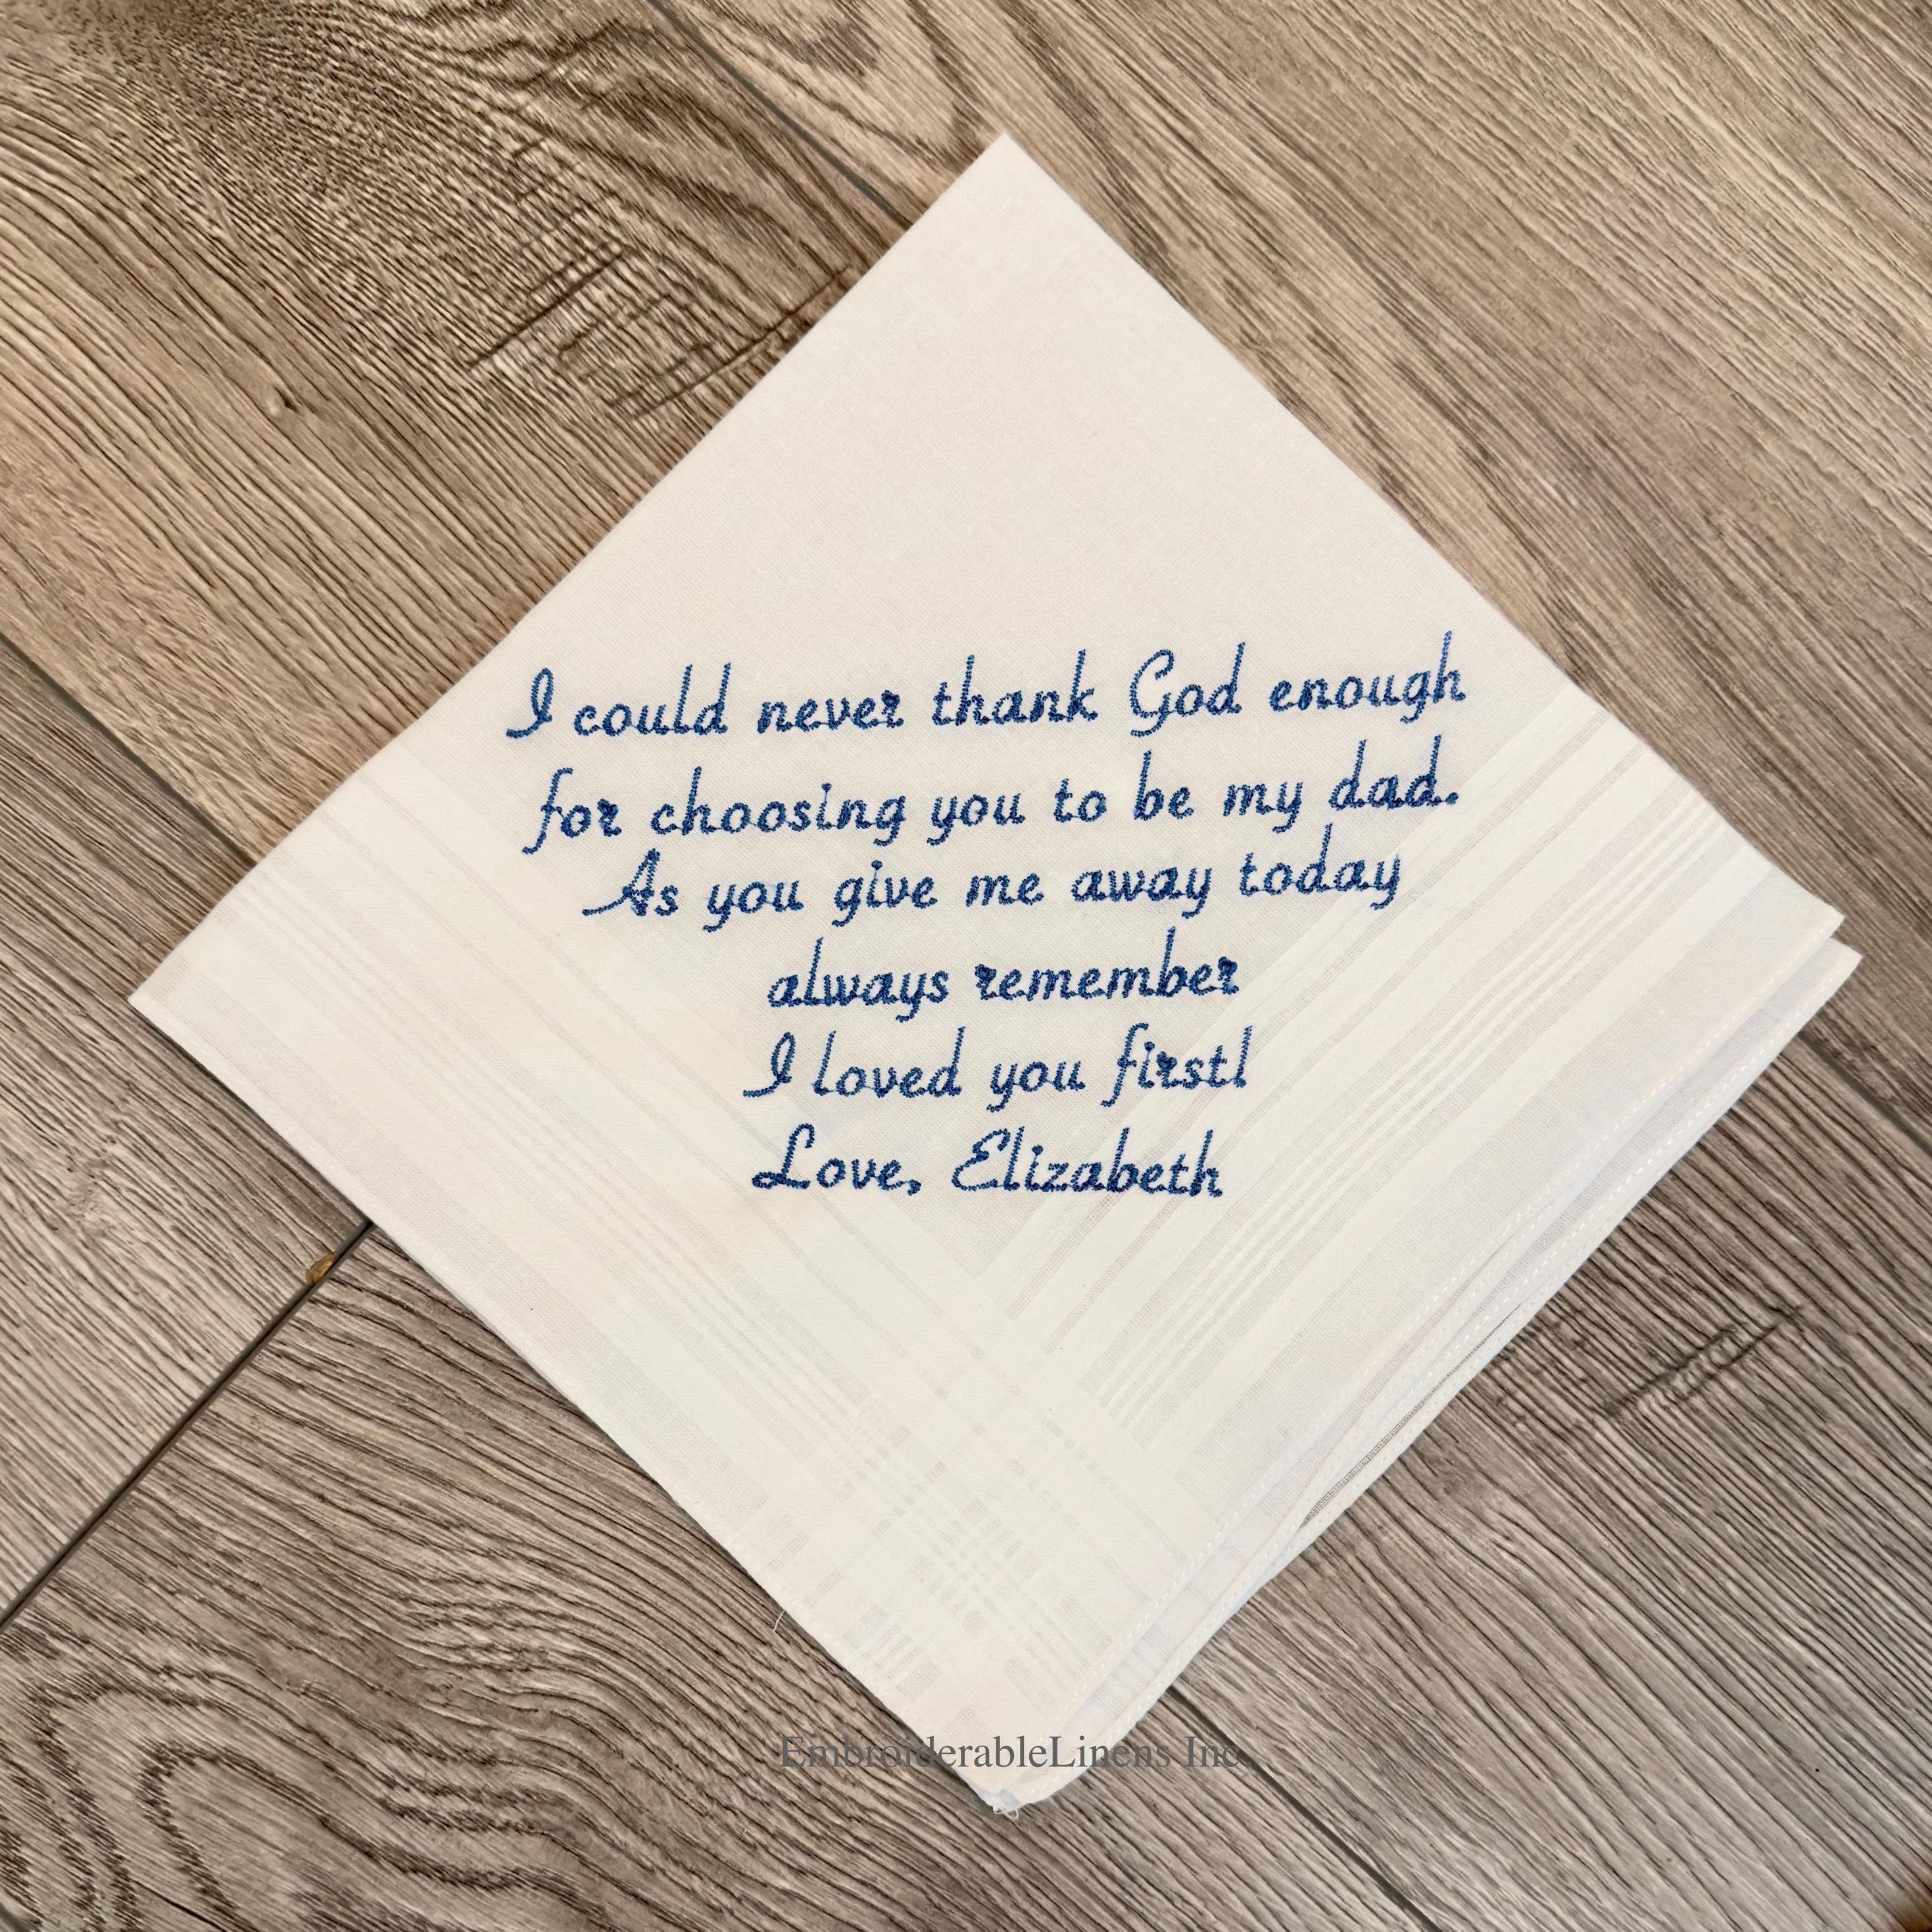 I could never thank God enough
for choosing you to be my dad.
As you give me away today
always remember
I loved you first!
Love, Elizabeth
EmbroiderableLinens Inc.